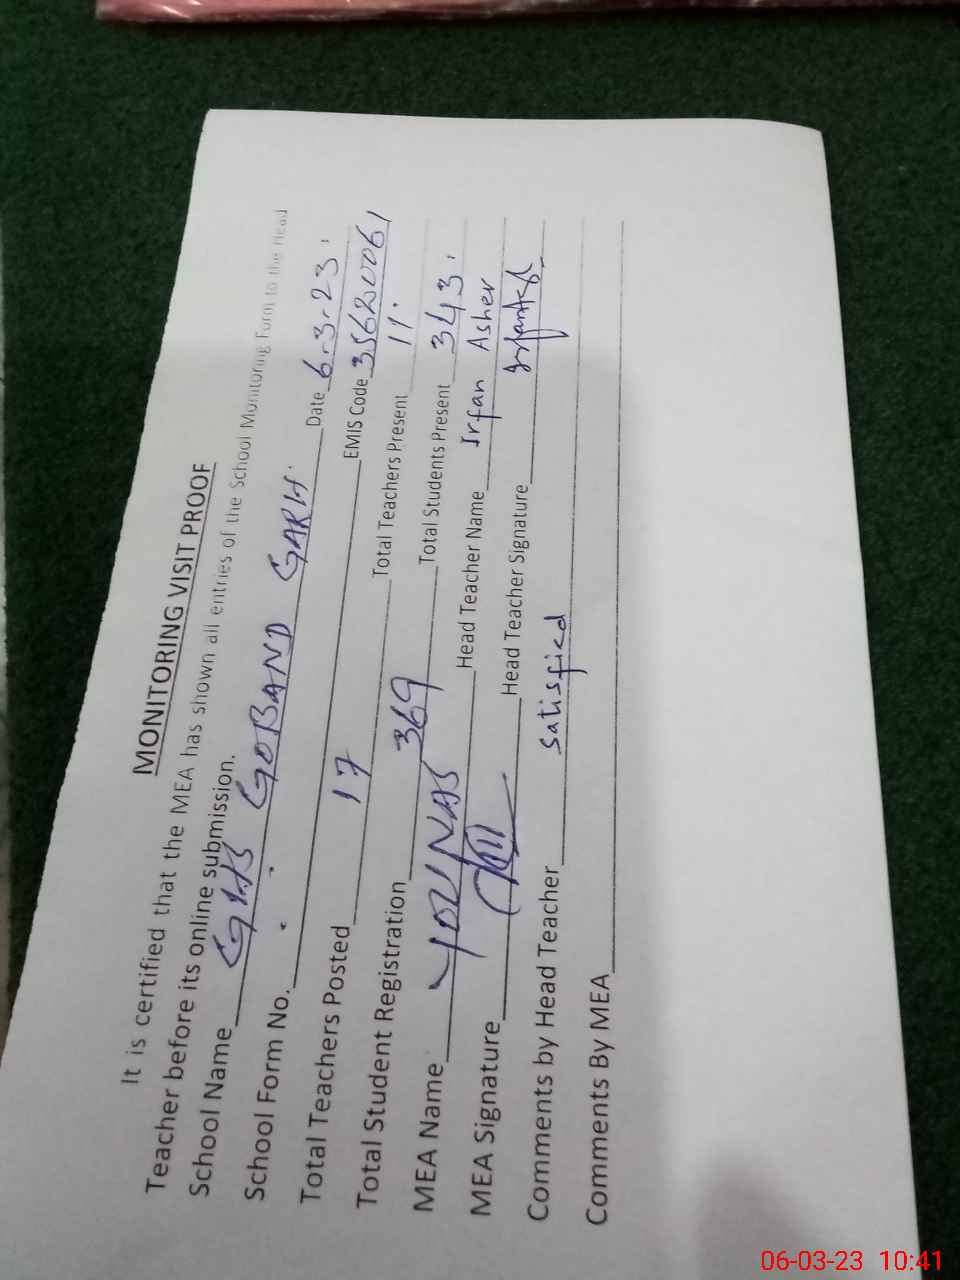 MONITORING VISIT PROOF
It is certified that the MEA has shown all entries of the School Monitoring Form to the Head
Teacher before its online submission.
School Name GHS GOBAND GARH. Date 6-3-23.
School Form No. EMIS Code 35620061
Total Teachers Posted 17 Total Teachers Present 11.
Total Student Registration 369 Total Students Present 343.
MEA Name YOUNAS Head Teacher Name Irfan Asher
MEA Signature Head Teacher Signature
Comments by Head Teacher Satisfied
Comments By MEA
06-03-23 10:41